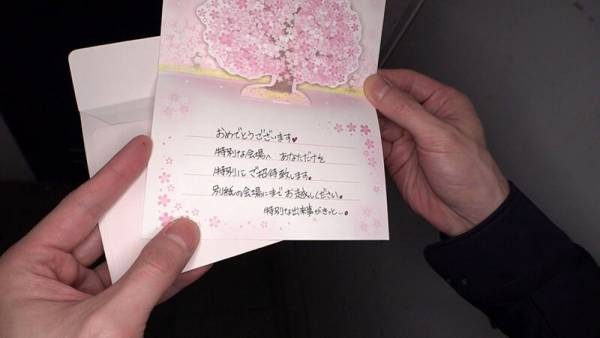 おめでとうございます♥
特別な会場へ あなただけを
特別に ご招待致します。
別紙の会場にまで お越しください。
特別な出来事がきっと…。